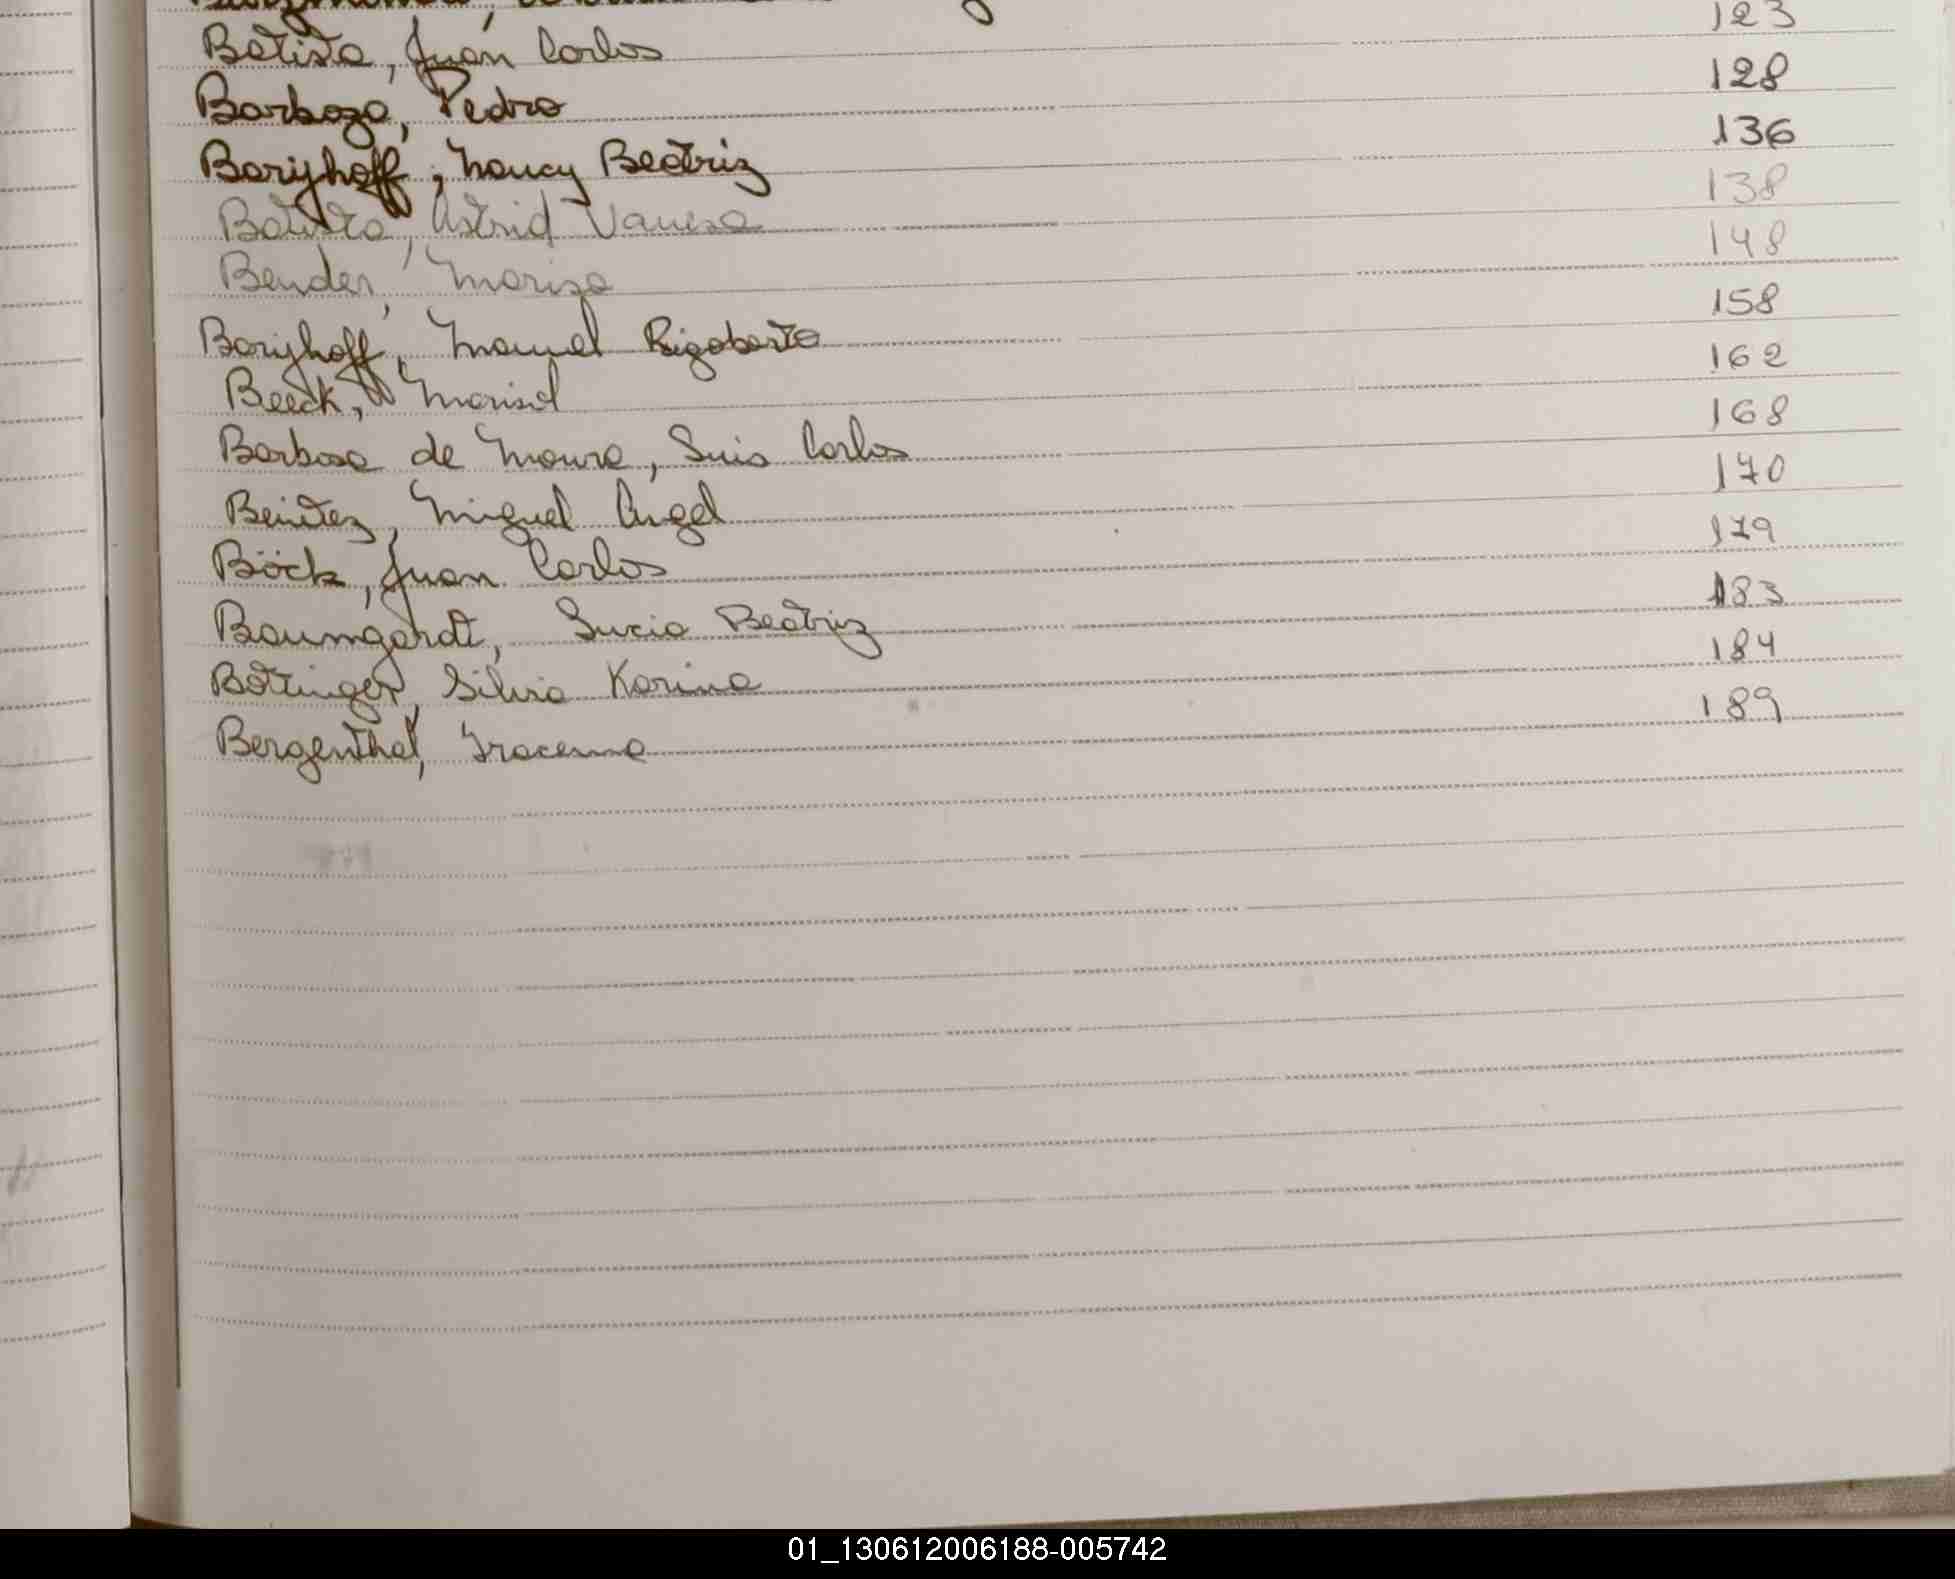 Batista, Juan Carlos 123
Barboza, Pedro 128
Barijhoff, Nancy Beatriz 136
Batista, Astrid Vanesa 138
Bender, Marisa 148
Barijhoff, Manuel Rigoberto 158
Beeck, Marisol 162
Barbosa de Moura, Luis Carlos 168
Benitez, Miguel Angel 170
Böck, Juan Carlos 179
Baumgardt, Lucia Beatriz 183
Bottinger, Silvia Karina 184
Bergenthal, Iracema 189
01_130612006188-005742